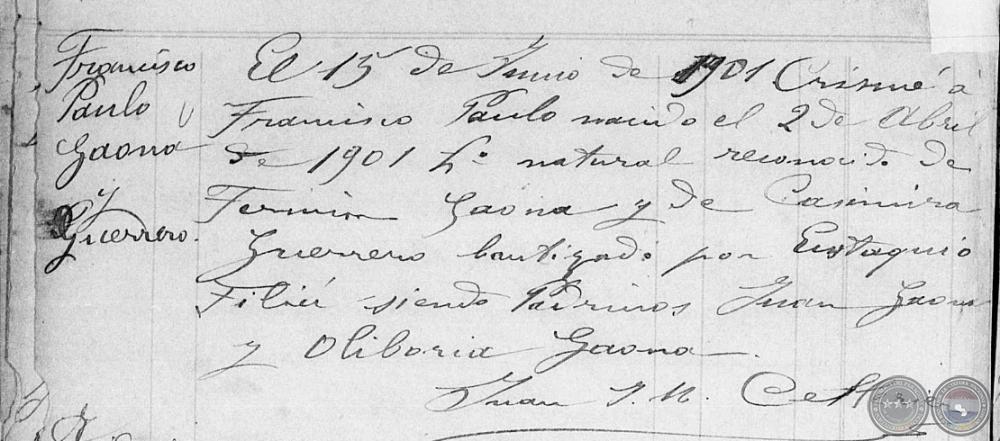 Francisco
Paulo
Gaona
y
Guerrero.
El 15 de Junio de 1901 Crismé á
Francisco Paulo nacido el 2 de Abril
de 1901 h.º natural reconocido de
Fermin Gaona y de Casimira
Guerrero bautizado por Eustaquio
siendo Padrinos Juan Gaona
y Oliboria Gaona.
Juan